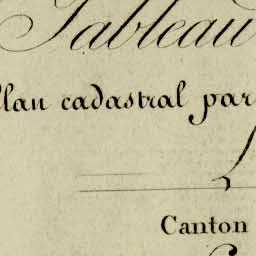 Tableau
Plan cadastral par
Canton